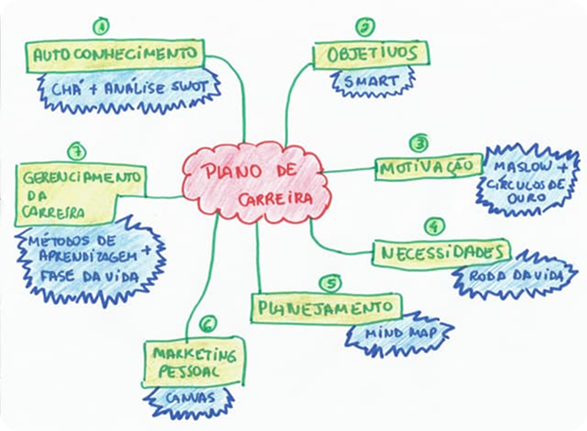 PLANO DE
CARREIRA
1
AUTO CONHECIMENTO
CHÁ + ANÁLISE SWOT
2
OBJETIVOS
SMART
3
MOTIVAÇÃO
MASLOW +
CÍRCULOS DE
OURO
4
NECESSIDADES
RODA DA VIDA
5
PLANEJAMENTO
MIND MAP
6
MARKETING
PESSOAL
CANVAS
7
GERENCIAMENTO
DA
CARREIRA
MÉTODOS DE
APRENDIZAGEM +
FASE DA VIDA